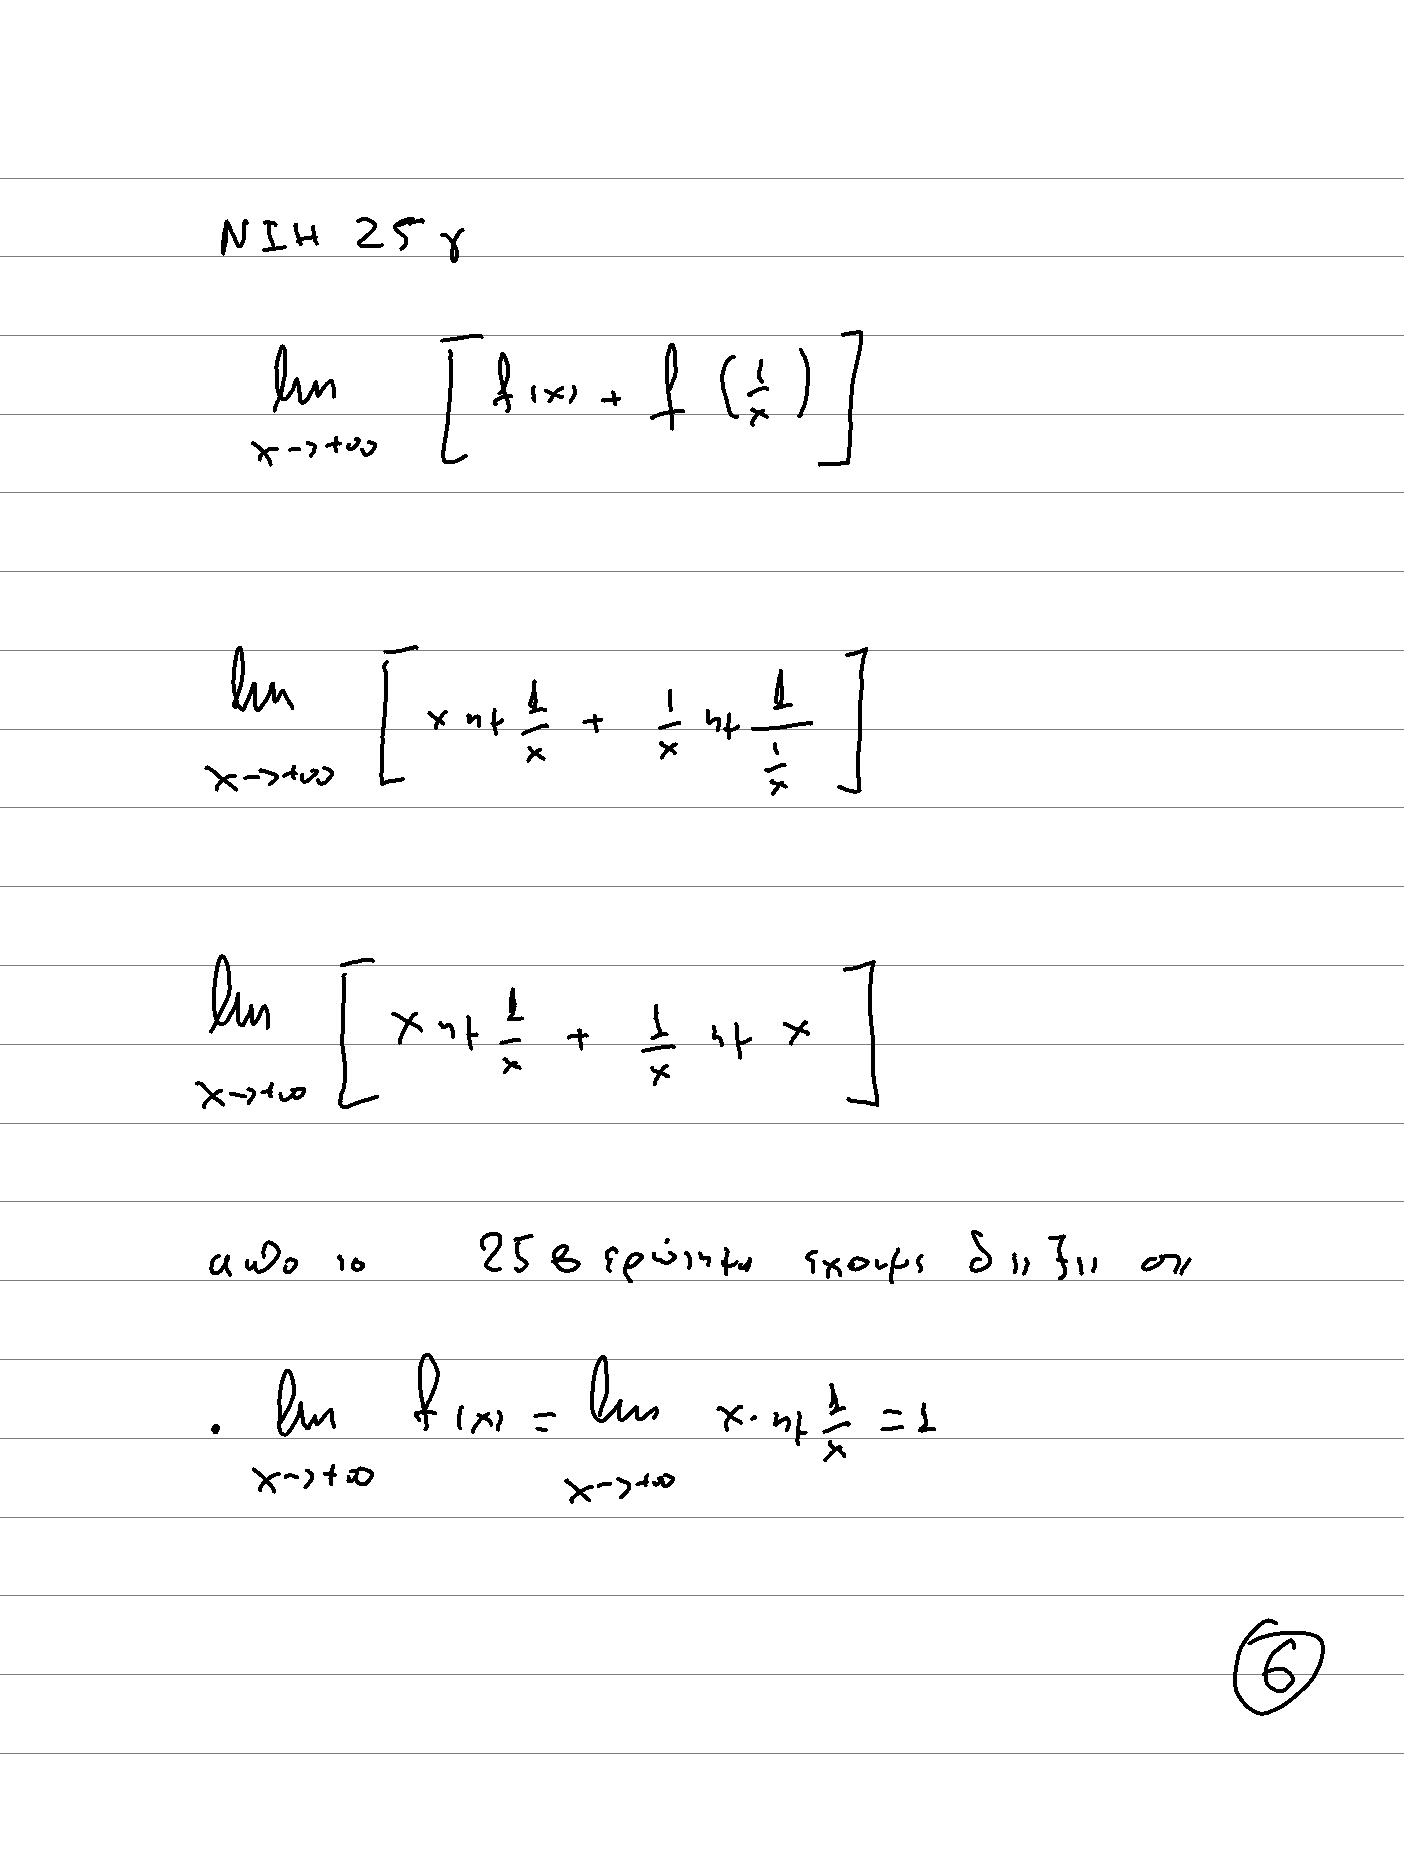 ΝΙΗ 25γ
lim [f(x) + f(1/x)]
x->+∞
lim [x ημ 1/x + 1/x ημ 1/(1/x)]
x->+∞
lim [x ημ 1/x + 1/x ημ x]
x->+∞
από το 25β ερώτημα έχουμε δείξει οτι
. lim f(x) = lim x·ημ 1/x = 1
x->+∞ x->+∞
6